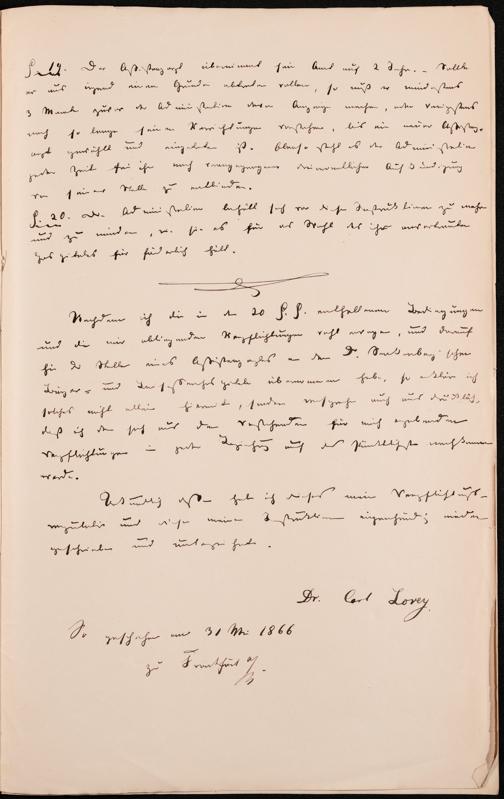 §. 19. Der Assistenzarzt übernimmt sein Amt auf 2 Jahre. Sollte
er aus irgend einem Grunde abtreten wollen, so muß er mindestens
3 Monate zuvor der Administration davon Anzeige machen, oder wenigstens
noch so lange seinen Verrichtungen vorstehen, bis ein neuer Assistenz-
arzt gewählt und eingetreten ist. Ebenso steht es der Administration
jeder Zeit frei ihn nach vorangegangener Aufkündigung
von seiner Stelle zu entbinden.
§. 20. Die Administration behält sich vor diese Instruktionen zu mehren
und zu mindern, wie sie es für das Wohl des ihr anvertrauten
Hospitales für förderlich hält.
Nachdem ich die in den 20 §. §. enthaltenen Bedingungen
und die mir obliegenden Verpflichtungen wohl erwogen, und darauf
hin die Stelle eines Assistenzarztes an dem Dr. Senckenbergischen
Bürger- und übernommen habe, so erkläre ich
solches nicht allein hiermit, sondern verspreche auch ausdrücklich,
daß ich den sich aus dem Vorstehenden für mich ergebenden
Verpflichtungen in jeder Beziehung auf das Pünktlichste nachkommen
werde.
Urkundlich dessen habe ich dieses mein Verpflichtungs-
und diese meine Instruktion eigenhändig nieder
geschrieben und unterzeichnet.
Dr. Carl Lorey.
So geschehen am 31 Mai 1866
zu Frankfurt a/M.